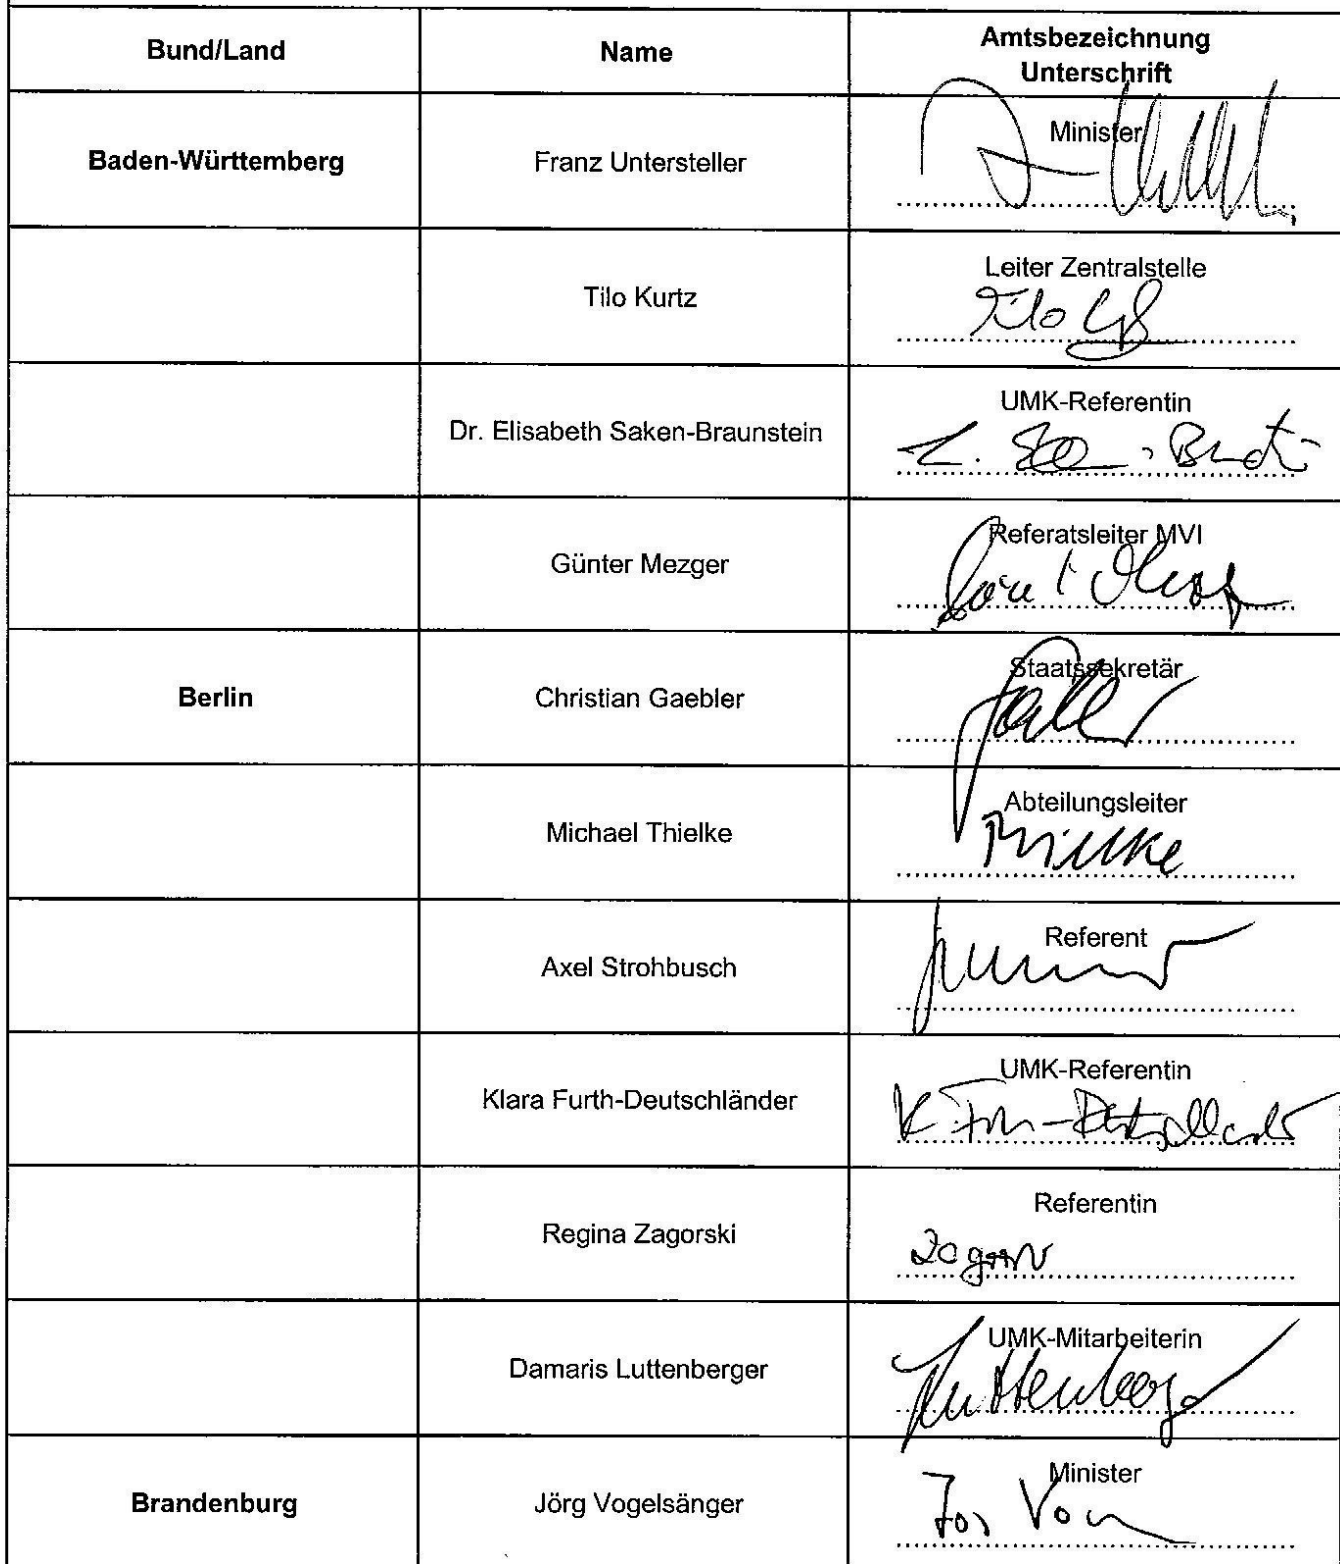 Bund/Land
Name
Amtsbezeichnung
Unterschrift
Baden-Württemberg
Franz Untersteller
Minister
Tilo Kurtz
Leiter Zentralstelle
Tilo
Dr. Elisabeth Saken-Braunstein
UMK-Referentin
Günter Mezger
Referatsleiter MVI
Berlin
Christian Gaebler
Staatssekretär
Michael Thielke
Abteilungsleiter
Thielke
Axel Strohbusch
Referent
Klara Furth-Deutschländer
UMK-Referentin
Regina Zagorski
Referentin
Damaris Luttenberger
UMK-Mitarbeiterin
Brandenburg
Jörg Vogelsänger
Minister